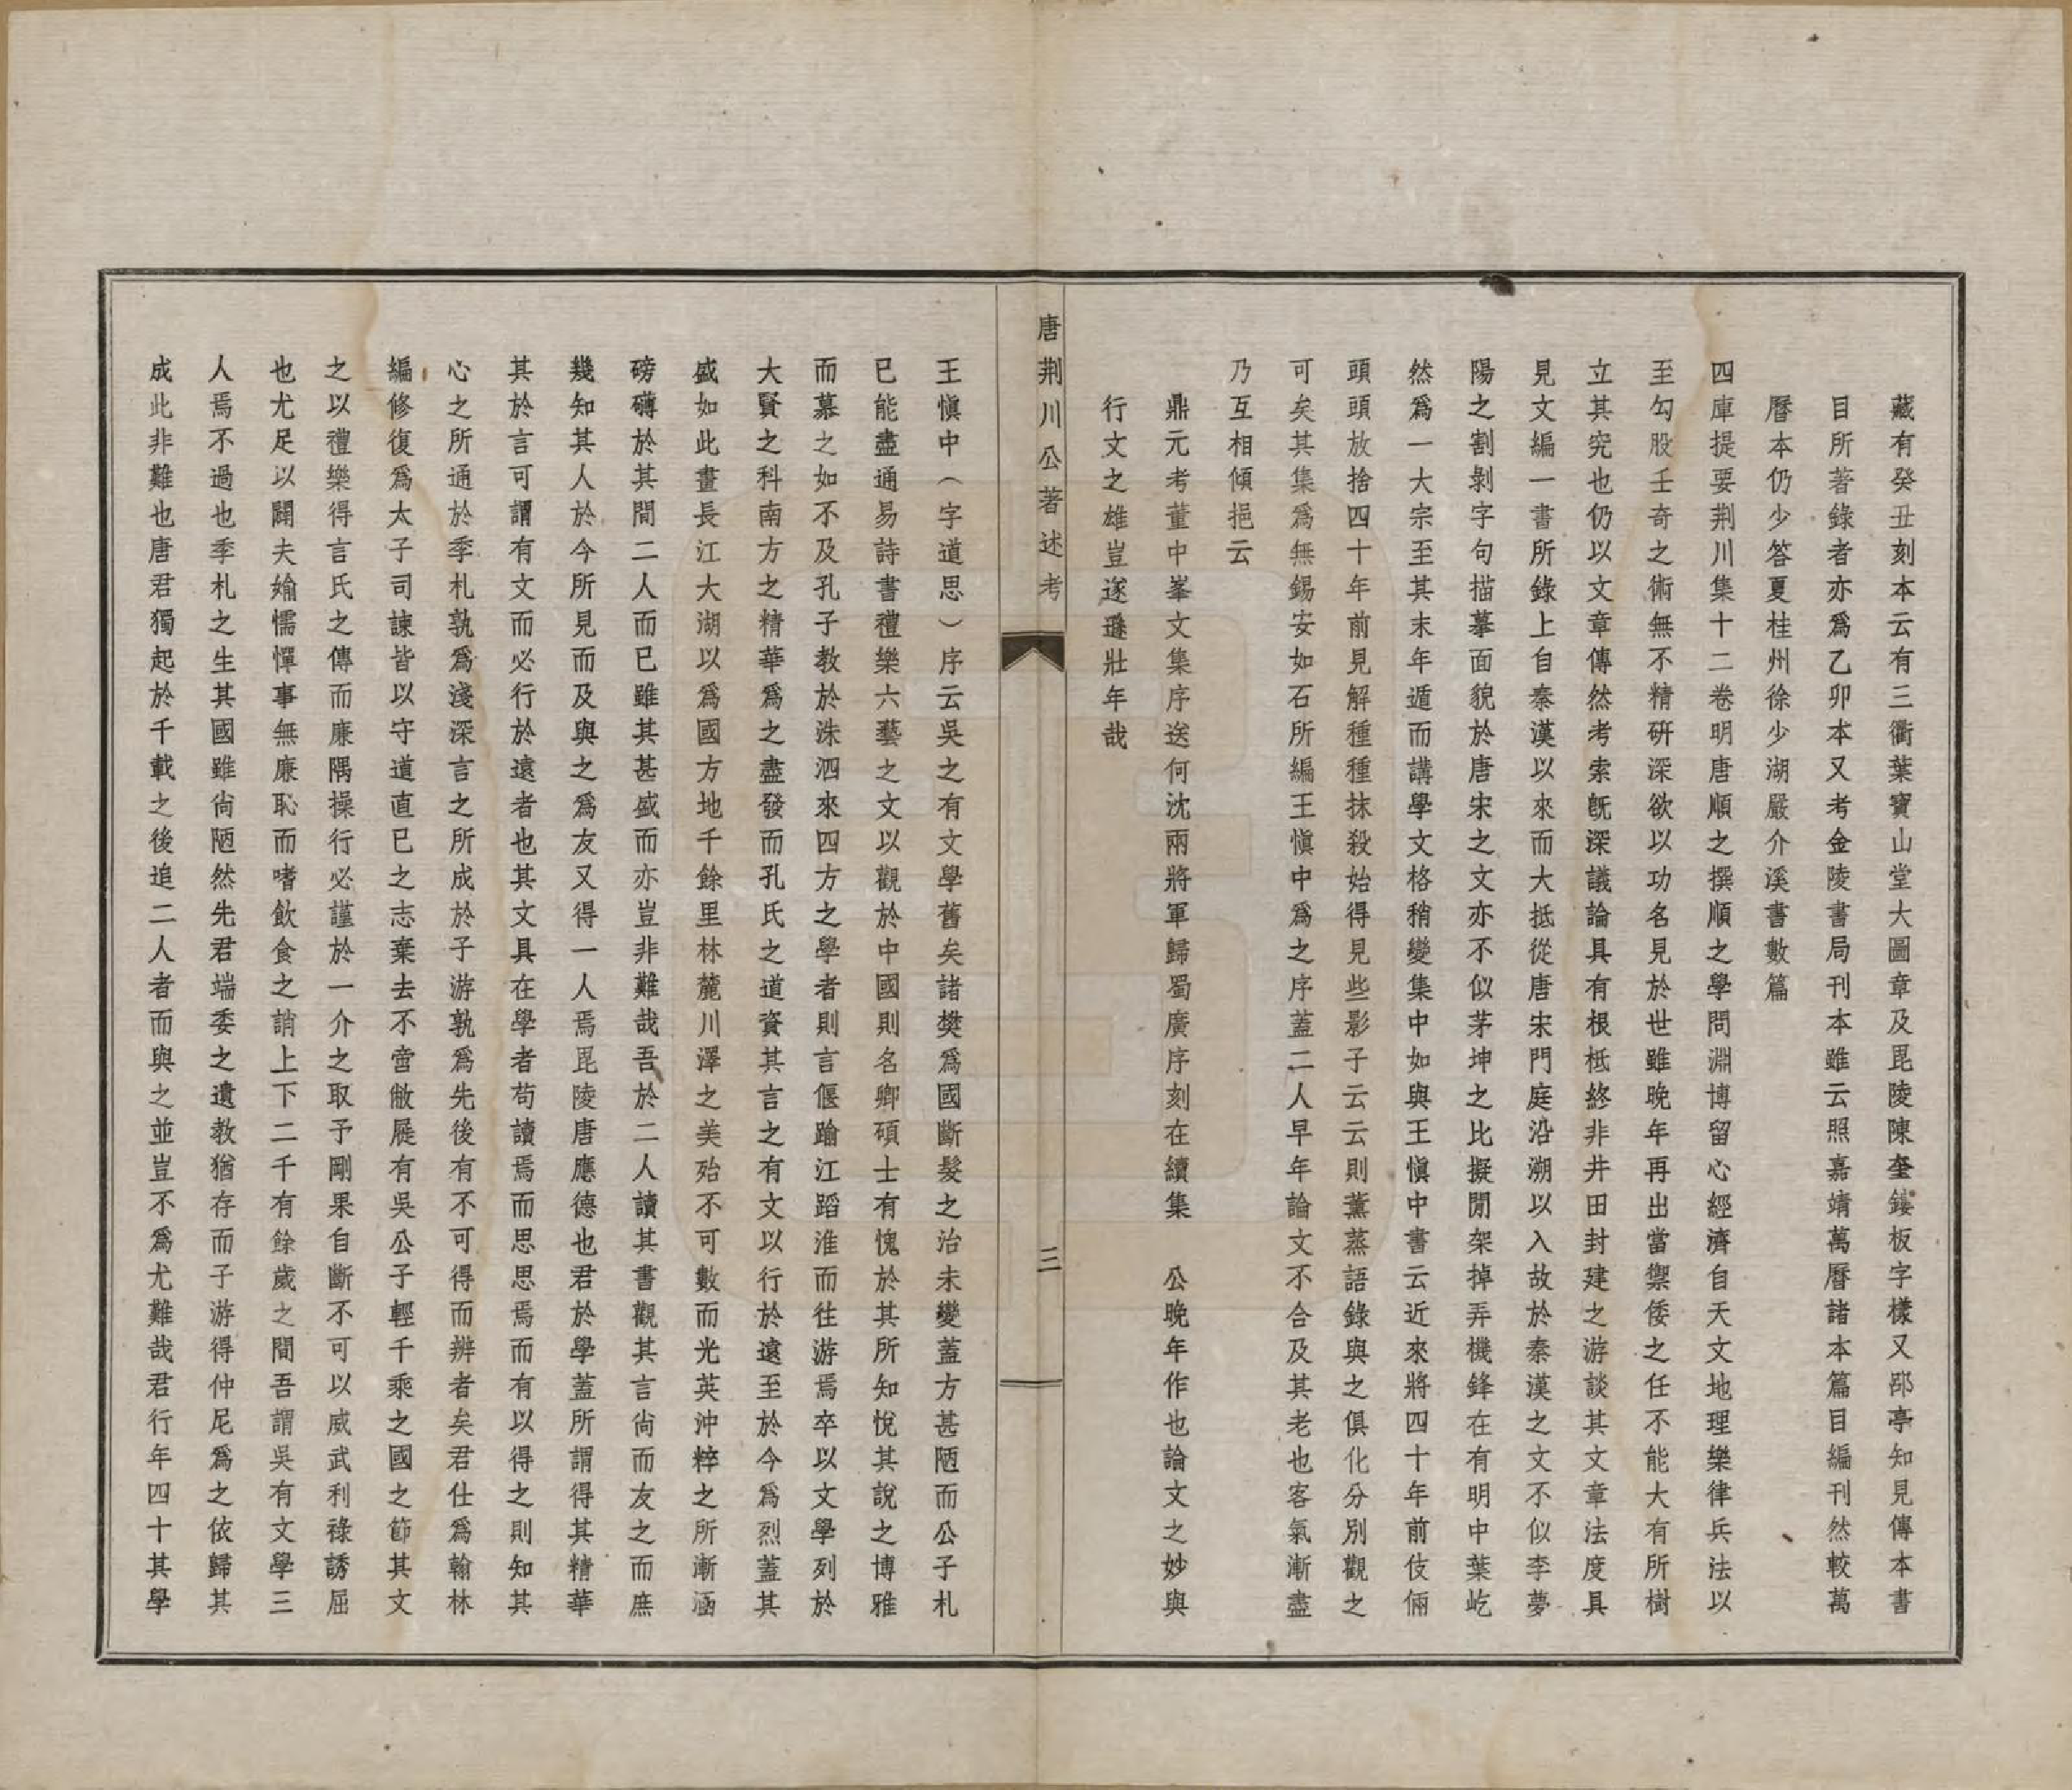 藏有癸丑刻本云有三衢葉寶山堂大圖章及毘陵陳奎鏤板字樣又邵亭知見傳本書
目所著錄者亦爲乙卯本又考金陵書局刊本雖云照嘉靖萬曆諸本篇目編刊然較萬
曆本仍少答夏桂州徐少湖嚴介溪書數篇
四庫提要荆川集十二卷明唐順之撰順之學問淵博留心經濟自天文地理樂律兵法以
至勾股壬奇之術無不精研深欲以功名見於世雖晚年再出當禦倭之任不能大有所樹
立其究也仍以文章傳然考索旣深議論具有根柢終非井田封建之游談其文章法度具
見文編一書所錄上自秦漢以來而大抵從唐宋門庭沿溯以入故於秦漢之文不似李夢
陽之割剝字句描摹面貌於唐宋之文亦不似茅坤之比擬閒架掉弄機鋒在有明中葉屹
然爲一大宗至其末年遁而講學文格稍變集中如與王愼中書云近來將四十年前伎倆
頭頭放捨四十年前見解種種抹殺始得見些影子云云則薰蒸語錄與之俱化分別觀之
可矣其集爲無錫安如石所編王愼中爲之序蓋二人早年論文不合及其老也客氣漸盡
乃互相傾挹云
鼎元考董中峯文集序送何沈兩將軍歸蜀廣序刻在續集　公晚年作也論文之妙與
行文之雄豈遂遜壯年哉
唐荆川公著述考
三
王愼中（字道思）序云吳之有文學舊矣諸樊爲國斷髮之治未變蓋方甚陋而公子札
已能盡通易詩書禮樂六藝之文以觀於中國則名卿碩士有愧於其所知悅其說之博雅
而慕之如不及孔子教於洙泗來四方之學者則言偃踰江蹈淮而往游焉卒以文學列於
大賢之科南方之精華爲之盡發而孔氏之道資其言之有文以行於遠至於今爲烈蓋其
盛如此畫長江大湖以爲國方地千餘里林麓川澤之美殆不可數而光英沖粹之所漸涵
磅礴於其間二人而已雖其甚盛而亦豈非難哉吾於二人讀其書觀其言尙而友之而庶
幾知其人於今所見而及與之爲友又得一人焉毘陵唐應德也君於學蓋所謂得其精華
其於言可謂有文而必行於遠者也其文具在學者苟讀焉而思思焉而有以得之則知其
心之所通於季札孰爲淺深言之所成於子游孰爲先後有不可得而辨者矣君仕爲翰林
編修復爲太子司諫皆以守道直已之志棄去不啻敝屣有吳公子輕千乘之國之節其文
之以禮樂得言氏之傳而廉隅操行必謹於一介之取予剛果自斷不可以威武利祿誘屈
也尤足以闢夫婾懦憚事無廉恥而嗜飮食之誚上下二千有餘歲之間吾謂吳有文學三
人焉不過也季札之生其國雖尙陋然先君端委之遺教猶存而子游得仲尼爲之依歸其
成此非難也唐君獨起於千載之後追二人者而與之並豈不爲尤難哉君行年四十其學